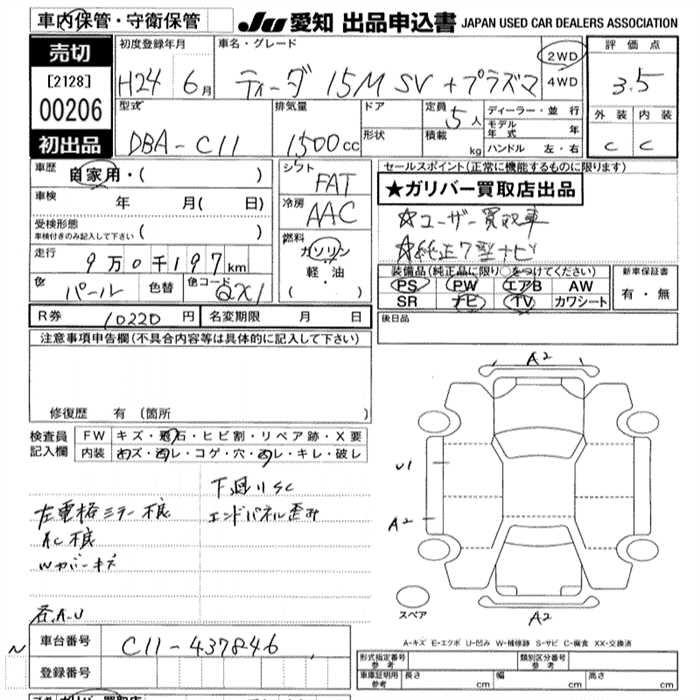 車内保管・守衛保管
JU 愛知 出品申込書 JAPAN USED CAR DEALERS ASSOCIATION
売切
[2128]
00206
初出品
初度登録年月
H24 6月
車名・グレード
ティーダ 15M SV +プラズマ
2WD
4WD
評価点
3.5
外装 内装
C C
型式
DBA-C11
排気量
1500cc
ドア
形状
定員 5人
積載 kg
ディーラー・並行
モデル年式 年
ハンドル 左・右
車歴
自家用・( )
車検 年 月( 日)
受検形態
車検付きのみ記入して下さい ( )
走行
9万0千197km
色 パール 色替 色コード QX1
シフト
FAT
冷房
AAC
燃料
ガソリン
軽油
( ・ )
セールスポイント(正常に機能するものに限ります)
★ガリバー買取店出品
☆ユーザー買取車
☆純正7型ナビ
装備品(純正品に限り○をつけてください)
PS PW エアB AW
SR ナビ TV カワシート
新車保証書
有・無
R券 10220円 名変期限 月 日
後日品
注意事項申告欄(不具合内容等は具体的に記入して下さい)
修復歴 有 (箇所 )
検査員記入欄
FW キズ・飛石・ヒビ割・リペア跡・X要
内装 キズ・汚レ・コゲ・穴・スレ・キレ・破レ
下廻りSC
左電格ミラー不良
エンドパネル歪み
AC不良
Wカバーキズ
各A.U
A2
U1
A2
A2
スペア
A-キズ E-エクボ U-凹み W-補修跡 S-サビ C-腐食 XX-交換済
N
車台番号 C11-437846
登録番号
形式指定番号 参考
類別区分番号 参考
車庫証明用 参考 長さ cm 幅 cm 高さ cm